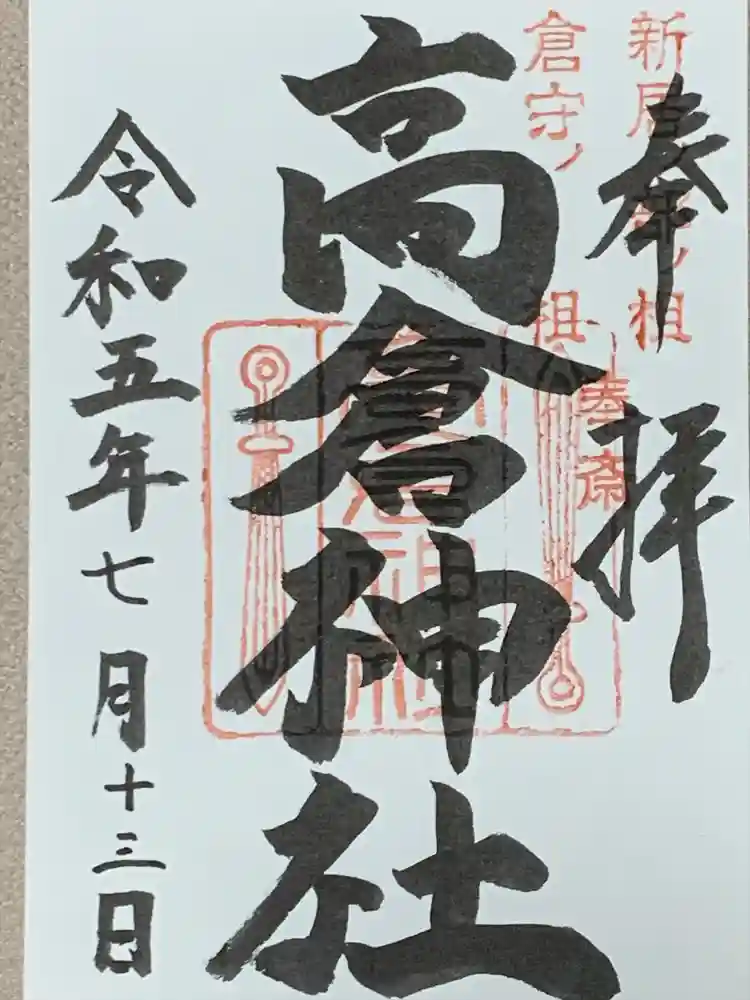 奉拝
倉守ノ祖
奉斎
高倉神社
令和五年七月十三日